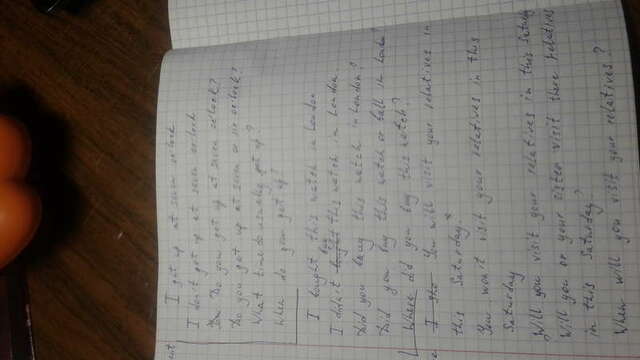 I get up at seven o'clock
I don't get up at seven o'clock
Do you get up at seven o'clock?
Do you get up at seven or six o'clock?
What time do get up?
When do you get up?
I bought this watch in London
I didn't buy this watch in London
Did you buy this watch in London?
Did you buy this watch or ball in London?
Where did you buy this watch?
You will visit your relatives in
this Saturday
You won't visit your relatives in this
Saturday
Will you visit your relatives in this Saturday
Will you or your sister visit there relatives
in this Saturday?
When will you visit your relatives?